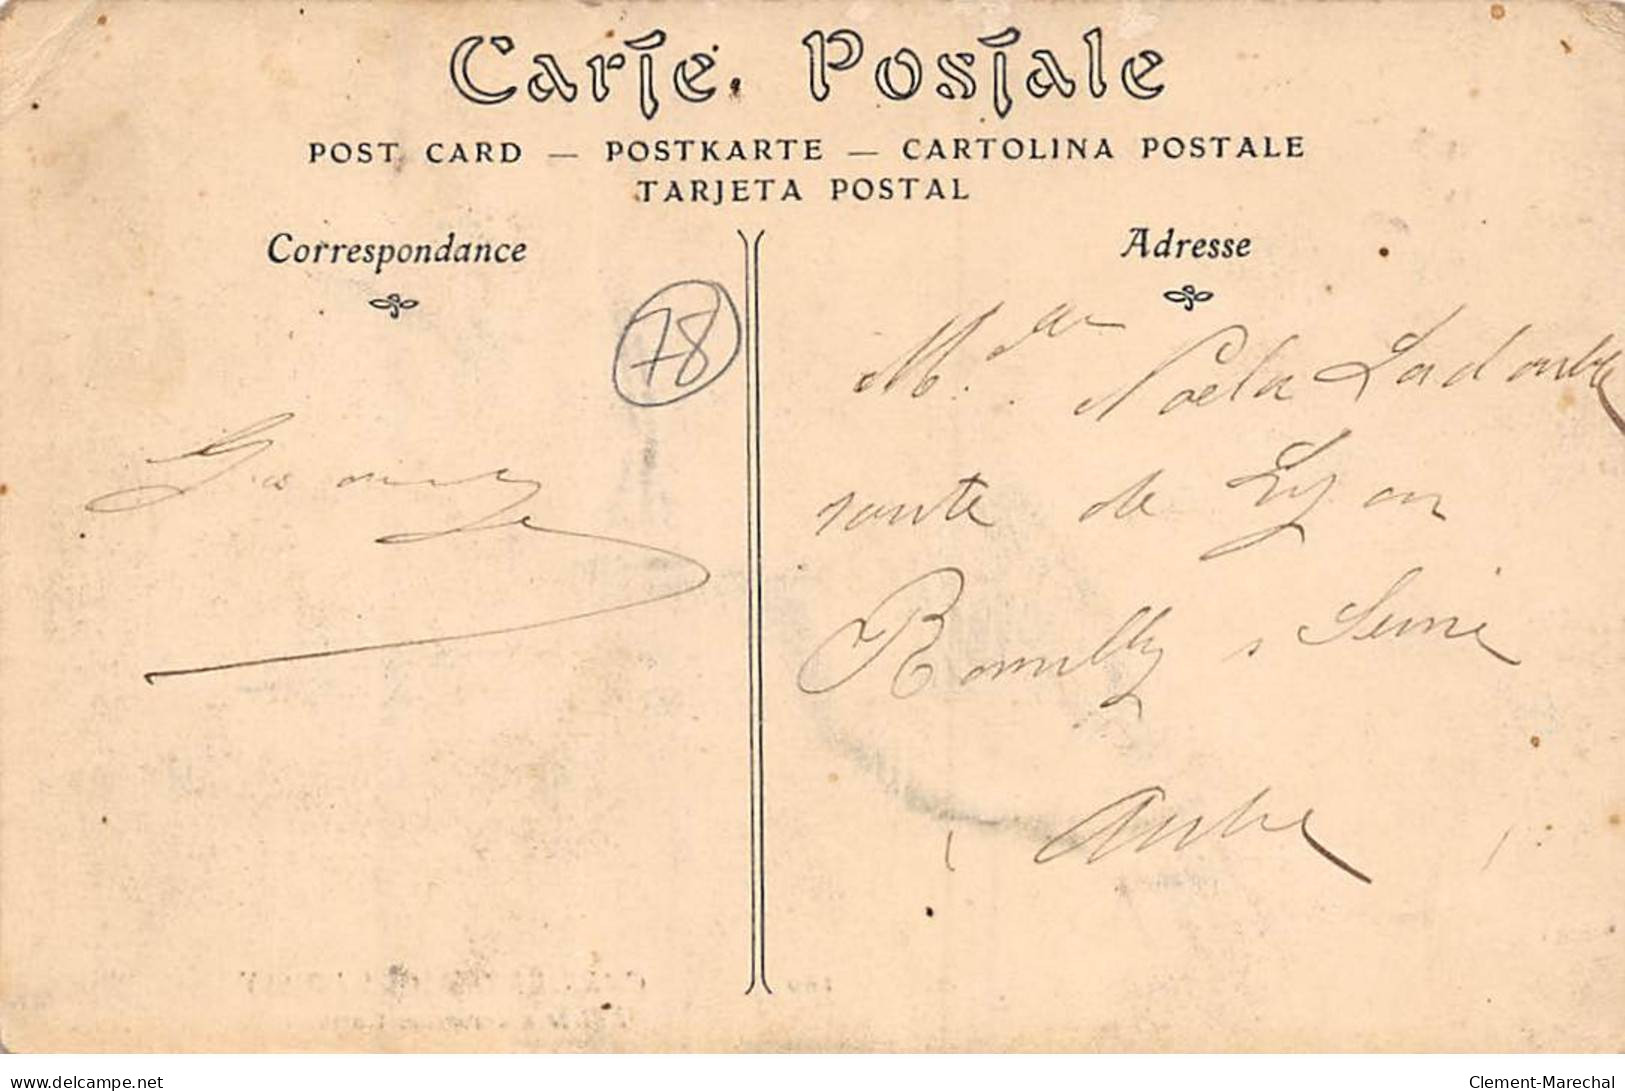 Carte Postale
POST CARD — POSTKARTE — CARTOLINA POSTALE
TARJETA POSTAL
Correspondance
Adresse
78
Noela
route de Lyon
Romilly s Seine
Aube
www.delcampe.net
Clement-Marechal